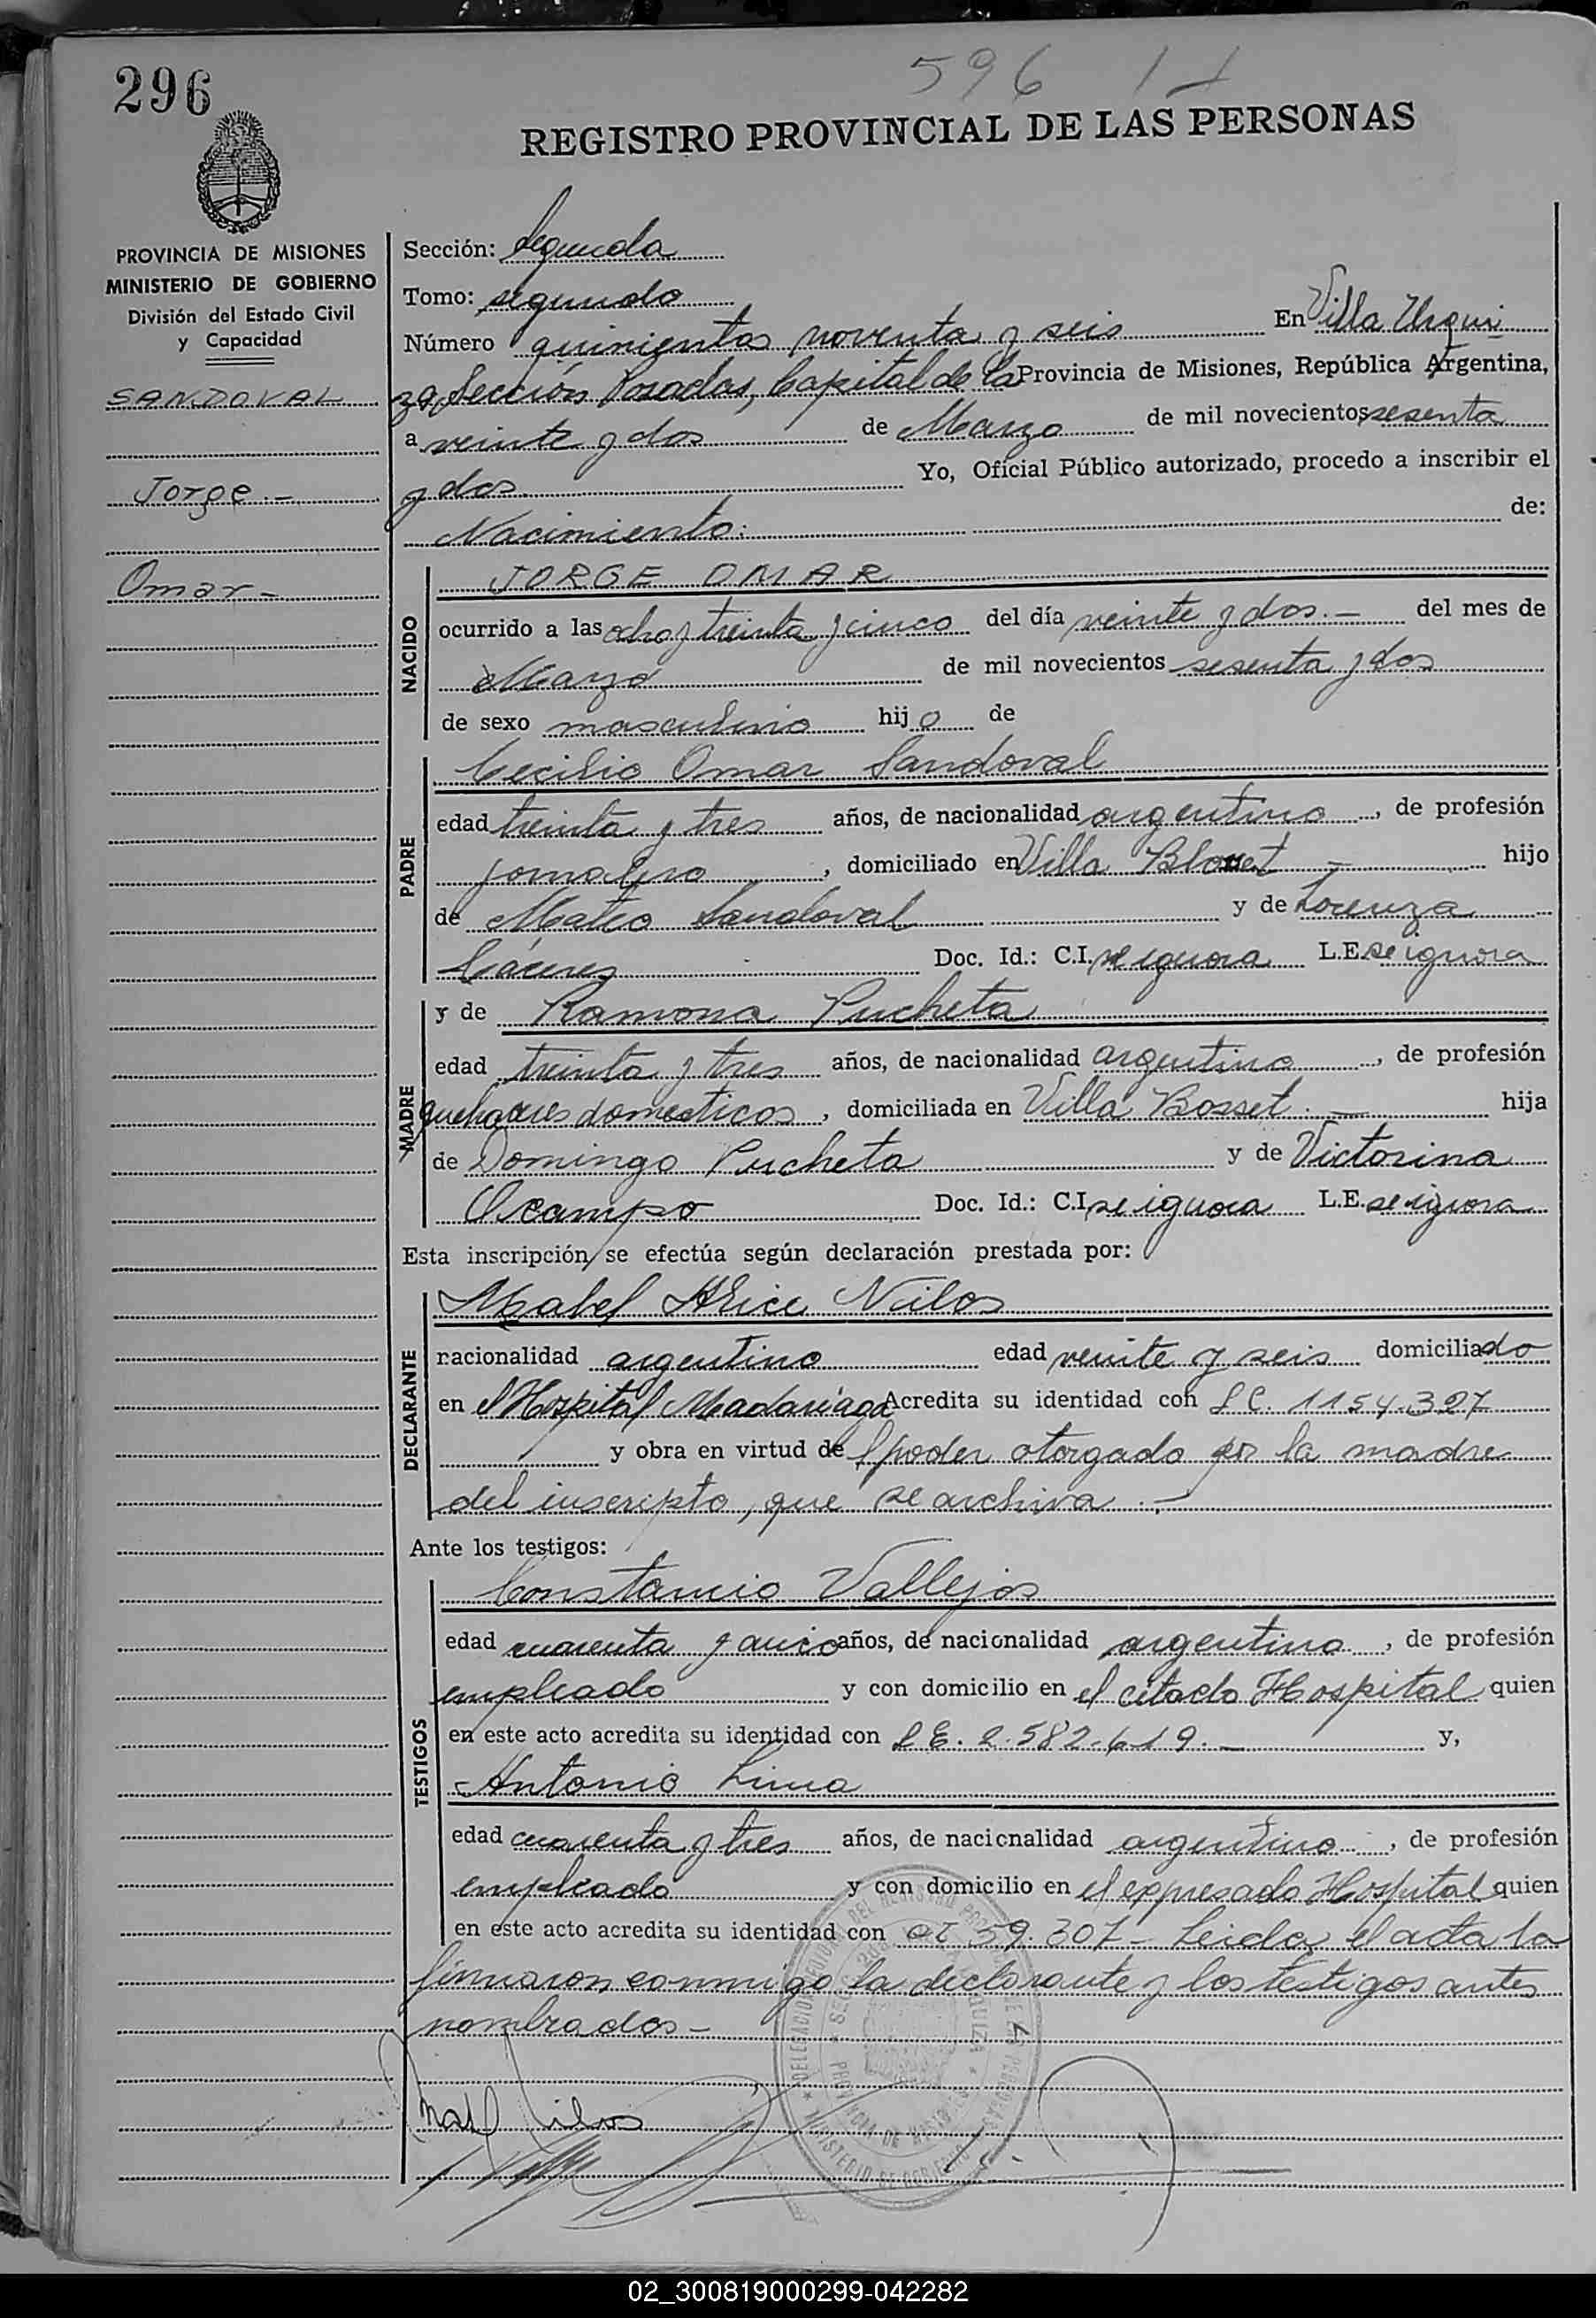 296
596
REGISTRO PROVINCIAL DE LAS PERSONAS
PROVINCIA DE MISIONES
MINISTERIO DE GOBIERNO
División del Estado Civil
y Capacidad
SANDOVAL
Jorge.-
Omar-
Sección: Segunda
Tomo: segundo
Número quinientos noventa y seis En Villa Urqui
za, Sección Posadas, Capital de la Provincia de Misiones, República Argentina,
a veinte y dos de Marzo de mil novecientos sesenta
y dos. Yo, Oficial Público autorizado, procedo a inscribir el
Nacimiento: de:
NACIDO
JORGE OMAR
ocurrido a las ocho y treinta y cinco del día veinte y dos.- del mes de
Marzo de mil novecientos sesenta y dos
de sexo masculino hijo de
PADRE
Cecilio Omar Sandoval
edad treinta y tres años, de nacionalidad argentino, de profesión
jornalero, domiciliado en Villa Blosset - hijo
de Mateo Sandoval y de Lorenza
Cáceres Doc. Id.: C.I. se ignora L.E. se ignora
MADRE
y de Ramona Pucheta
edad treinta y tres años, de nacionalidad argentina, de profesión
quehaceres domesticos, domiciliada en Villa Bosset.- hija
de Domingo Pucheta y de Victorina
Ocampo Doc. Id.: C.I. se ignora L.E. se ignora
Esta inscripción se efectúa según declaración prestada por:
DECLARANTE
Mabel Alice
nacionalidad argentino edad veinte y seis domiciliado
en el Hospital Madariaga Acredita su identidad con LC. 1154.327
y obra en virtud del poder otorgado por la madre
del inscripto, que se archiva.-
Ante los testigos:
TESTIGOS
Constancio Vallejos
edad cuarenta y cinco años, de nacionalidad argentino, de profesión
empleado y con domicilio en el citado Hospital quien
en este acto acredita su identidad con LE. 2.582.619.- y,
Antonio Lima
edad cuarenta y tres años, de nacionalidad argentino, de profesión
empleado y con domicilio en el expresado Hospital quien
en este acto acredita su identidad con CI 59.307- Leida el acta la
firmaron conmigo la declarante y los testigos antes
nombrados-
02_300819000299-042282